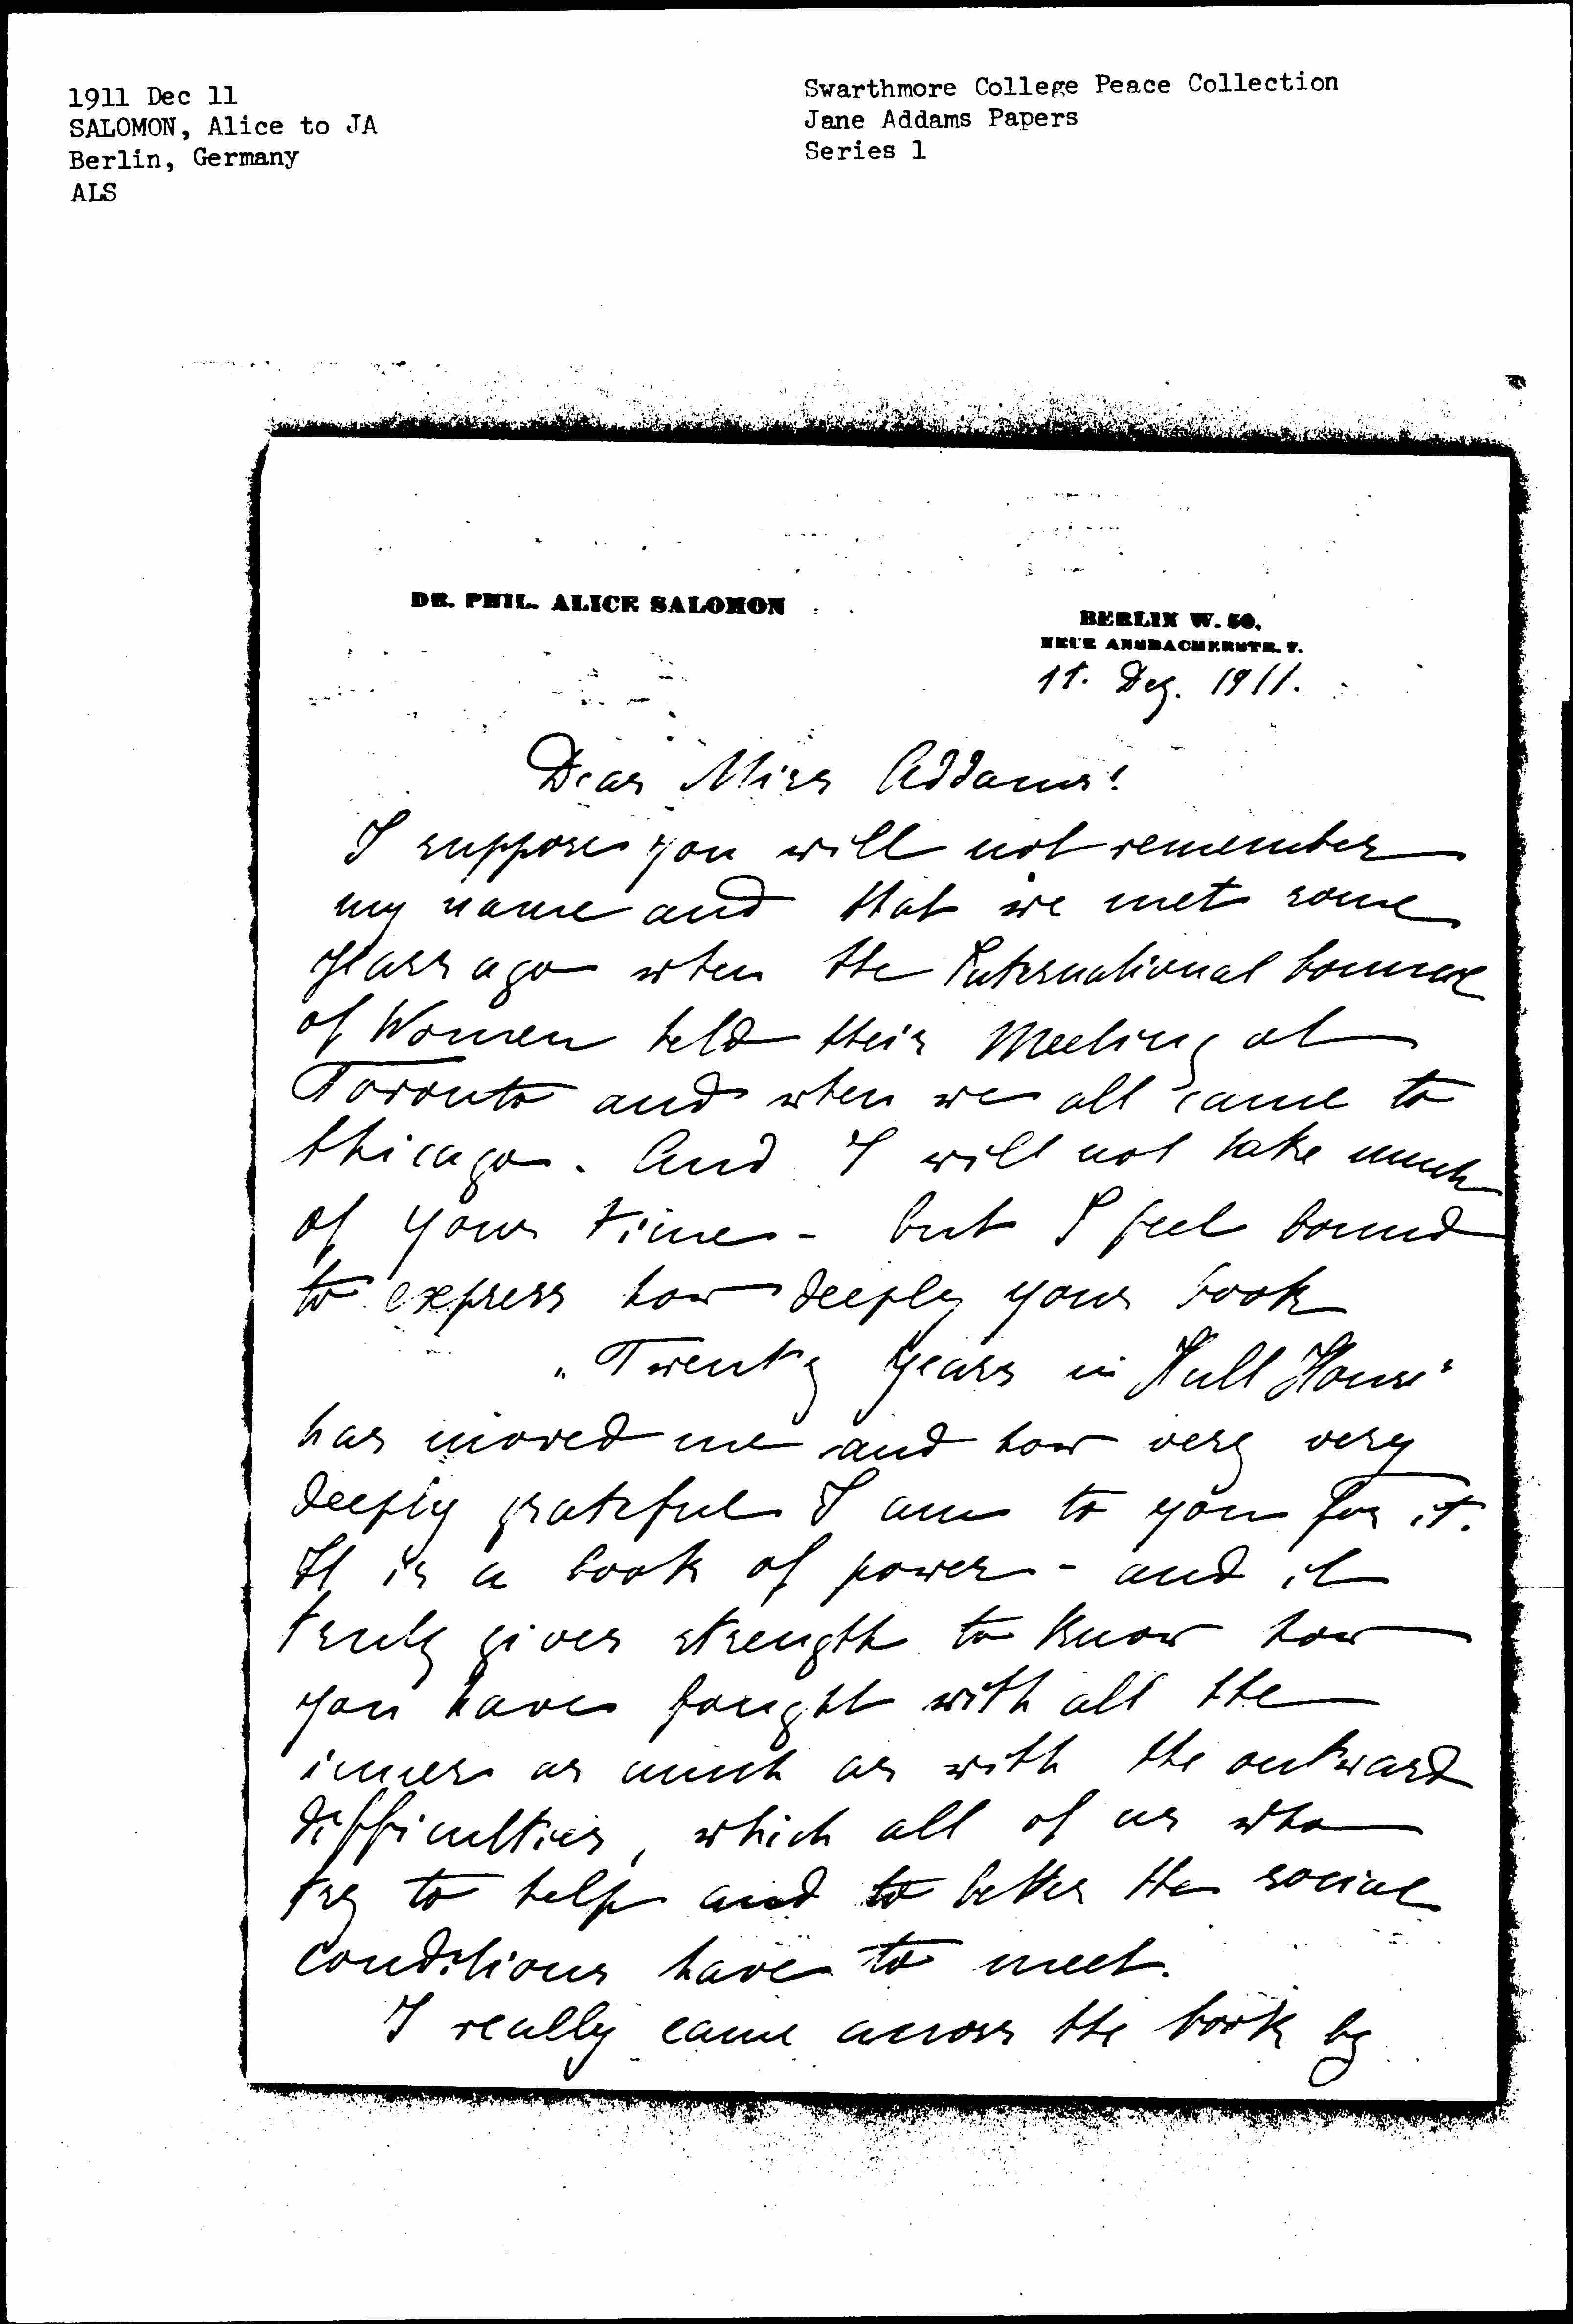 1911 Dec 11
SALOMON, Alice to JA
Berlin, Germany
ALS
Swarthmore College Peace Collection
Jane Addams Papers
Series 1
DR. PHIL. ALICE SALOMON
BERLIN W. 50.
NEUE ANSBACHERSTR. 7.
11. Dez. 1911.
Dear Miss Addams!
I suppose you will not remember
my name and that we met some
years ago when the International Council
of Women held their Meeting at
Toronto and when we all came to
Chicago. And I will not take much
of your time - but I feel bound
to express how deeply your book
„Twenty Years in Hull House"
has moved me and how very very
deeply grateful I am to you for it.
It is a book of power - and it
truly gives strength to know how
you have fought with all the
inner as much as with the outward
difficulties, which all of us who
try to help and to better the social
conditions have to meet.
I really came across the book by